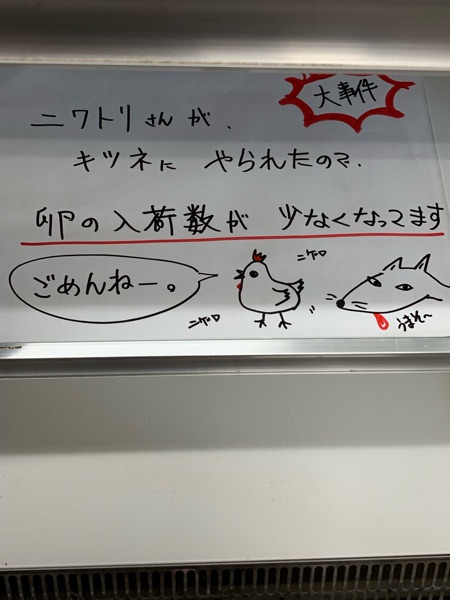 大事件
ニワトリさんが、
キツネに やられたので、
卵の入荷数が 少なくなってます
ごめんねー。
ニゲロ
ニゲロ
うまそ〜